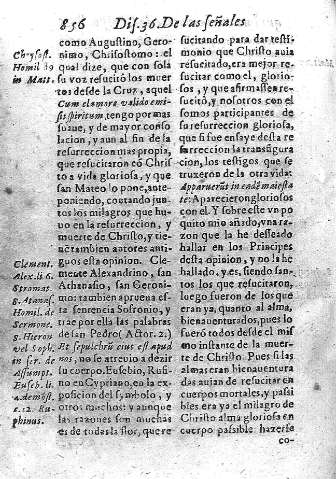 856 Dis. 36. De las señales
Chrysost.
Homil. 89
in Matt.
Clement.
Alex. li 6.
Stromas
s. Atanas.
Homil. de
Sermone.
s. Hieron
Assumpt.
Euseb. li.
4. demõst.
phinus.
como Augustino, Gero-
nimo, Chrisostomo: el
qual dize, que con sola
su voz resucitò los muer
tos desde la Cruz, aquel
Cum clamore valido emi-
sit spiritum, tengo por mas
suaue, y de mayor conso
lacion, y aun al fin de la
resurreccion mas propia,
que resucitaron cõ Chris
to a vida gloriosa, y que
san Mateo lo pone, ante-
poniendo, contando jun-
tos los milagros que hu-
uo en la resurreccion, y
muerte de Christo, y tie-
ne tambien autores anti-
guos esta opinion. Cle-
mente Alexandrino, san
Athanasio, san Geroni-
mo: tambien aprueua es-
ta sentencia Sofronio, y
trae por ella las palabras
de san Pedro (Actor. 2.)
Et sepulchrũ eius est apud
nos, no se atreuio a dezir
su cuerpo. Eusebio, Rufi-
no en Cypriano, en la ex
posicion del symbolo, y
otros muchos: y aunque
las razones son muchas
es de todas la flor, que re
sucitando para dar testi-
monio que Christo auia
resucitado, era mejor re-
sucitar como el, glorio-
sos, y que afirmassen re-
sucitò, y nosotros con el
somos participantes de
su resurreccion gloriosa,
que si fue ensaye desta re
surreccion la transfigura
cion, los testigos que se
truxeron de la otra vida:
Apparuerũt in eadẽ maiesta
te: Aparecieron gloriosos
con el. Y sobre este vn po
quito mio añado, vna ra-
zon que la he desseado
hallar en los Principes
desta opinion, y no la he
hallado, y es, siendo san-
tos los que resucitaron,
luego fueron de los que
eran ya, quanto al alma,
bienauenturados, pues lo
fuerõ todos desde el mis
mo instante de la muer-
te de Christo. Pues si las
almas eran bienauentura
das auian de resucitar en
cuerpos mortales, y passi
bles era ya el milagro de
Christo alma gloriosa en
cuerpo passible hazerse
co-